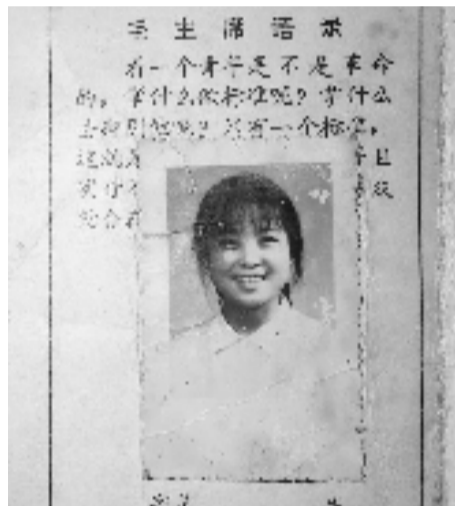 毛主席语录
看一个青年是不是革命
的,拿什么做标准呢?拿什么
去辨别他呢?只有一个标准,
这就是 且
实行不
结合在